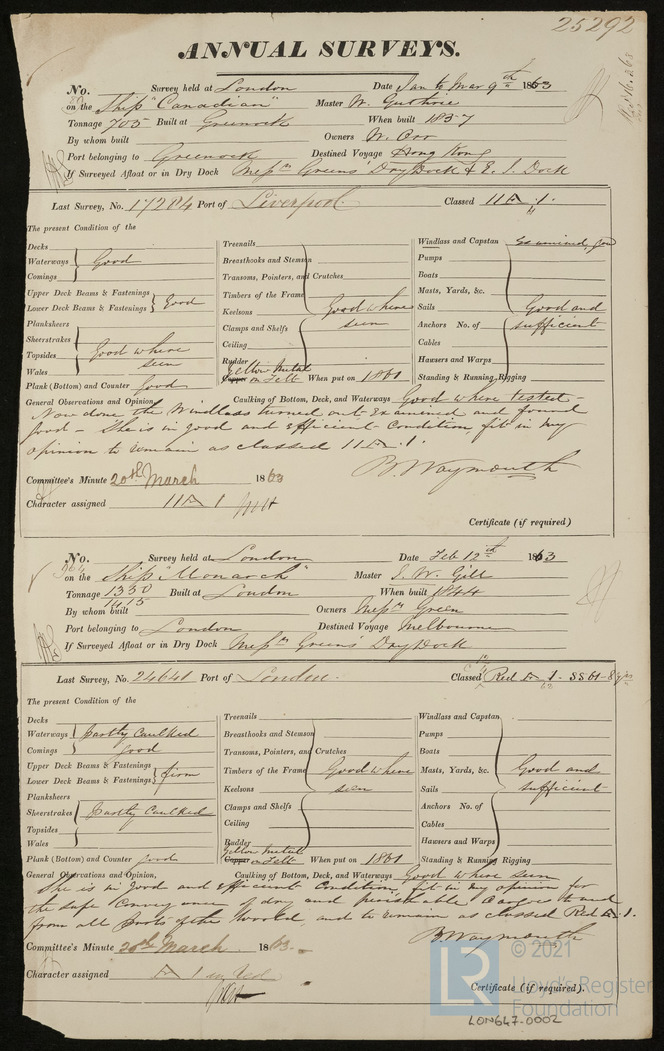 25292
ANNUAL SURVEYS.
No. Survey held at London Date Jan to Mar 9th 1863
on the Ship "Canadian" Master W. Guthrie
Tonnage 705 Built at Greenock When built 1837
By whom built Owners W. Orr
Port belonging to Greenock Destined Voyage Hong Kong
If Surveyed Afloat or in Dry Dock Messrs Greens Dry Dock & E. I. Dock
Last Survey, No. 17284 Port of Liverpool Classed 11 A 1.
The present Condition of the
Decks
Waterways Good
Comings
Upper Deck Beams & Fastenings
Lower Deck Beams & Fastenings Good
Planksheers
Sheerstrakes
Topsides Good where seen
Wales
Plank (Bottom) and Counter good
Treenails
Breasthooks and Stemson
Transoms, Pointers, and Crutches
Timbers of the Frame
Keelsons Good where
Clamps and Shelfs seen
Ceiling
Rudder
Yellow Metal
Copper on Felt When put on 1861
Windlass and Capstan Examined, good
Pumps
Boats
Masts, Yards, &c.
Sails Good and
Anchors No. of sufficient
Cables
Hausers and Warps
Standing & Running Rigging
General Observations and Opinion, Caulking of Bottom, Deck, and Waterways Good where tested -
Now done the Windlass turned out Examined and found
good - She is in good and efficient Condition, fit in my
opinion to remain as classed 11 A 1.
B Waymouth
Committee's Minute 20th March 1863
Character assigned 11 A 1
Certificate (if required)
No. Survey held at London Date Feb 12th 1863
on the Ship "Monarch" Master I. W. Gill
Tonnage 1350 Built at London When built 1844
1415
By whom built Owners Messrs Green
Port belonging to London Destined Voyage Melbourne
If Surveyed Afloat or in Dry Dock Messrs Greens Dry Dock
Last Survey, No. 24641 Port of London. Classed Red A 1 - SS 61 - 8 yrs
The present Condition of the
Decks
Waterways Partly Caulked
Comings good
Upper Deck Beams & Fastenings
Lower Deck Beams & Fastenings firm
Planksheers
Sheerstrakes Partly Caulked
Topsides
Wales
Plank (Bottom) and Counter good
Treenails
Breasthooks and Stemson
Transoms, Pointers, and Crutches
Timbers of the Frame Good where
Keelsons seen
Clamps and Shelfs
Ceiling
Rudder
Yellow Metal
Copper on Felt When put on 1861
Windlass and Capstan
Pumps
Boats
Masts, Yards, &c. Good and
Sails sufficient
Anchors No. of
Cables
Hausers and Warps
Standing & Running Rigging
General Observations and Opinion, Caulking of Bottom, Deck, and Waterways Good where seen
She is in good and efficient Condition, fit in my opinion for
the safe Conveyance of dry and perishable Cargoes to and
from all Parts of the World, and to remain as classed Red A 1.
B Waymouth
Committee's Minute 20th March 1863.
Character assigned A 1 in Red
Certificate (if required).
LR © 2021
Lloyd's Register
Foundation
LON647-0002